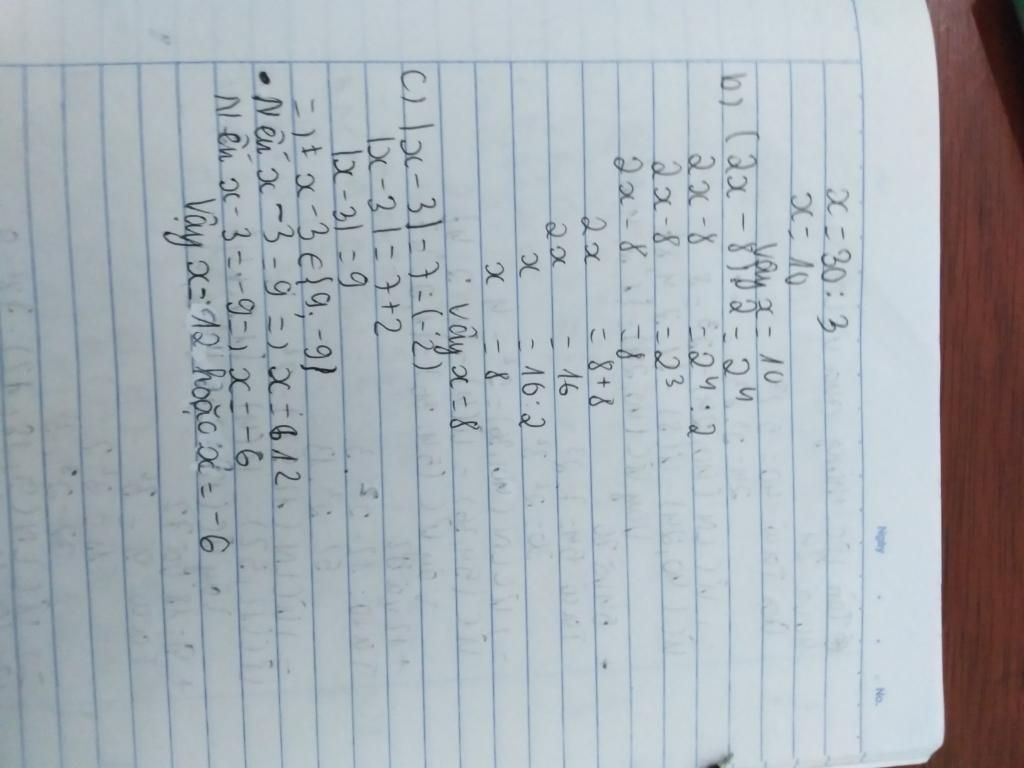 x = 30 : 3
x = 10
Vậy x = 10
b) (2x - 8) . 2 = 2⁴
2x - 8 = 2⁴ : 2
2x - 8 = 2³
2x - 8 = 8
2x = 8 + 8
2x = 16
x = 16 : 2
x = 8
Vậy x = 8
c) |x - 3| - 7 = (-2)
|x - 3| = 7 + 2
|x - 3| = 9
=) x - 3 ∈ {9; -9}
• Nếu x - 3 = 9 =) x = 12
Nếu x - 3 = -9 =) x = -6
Vậy x = 12 hoặc x = -6
Ngày
No.